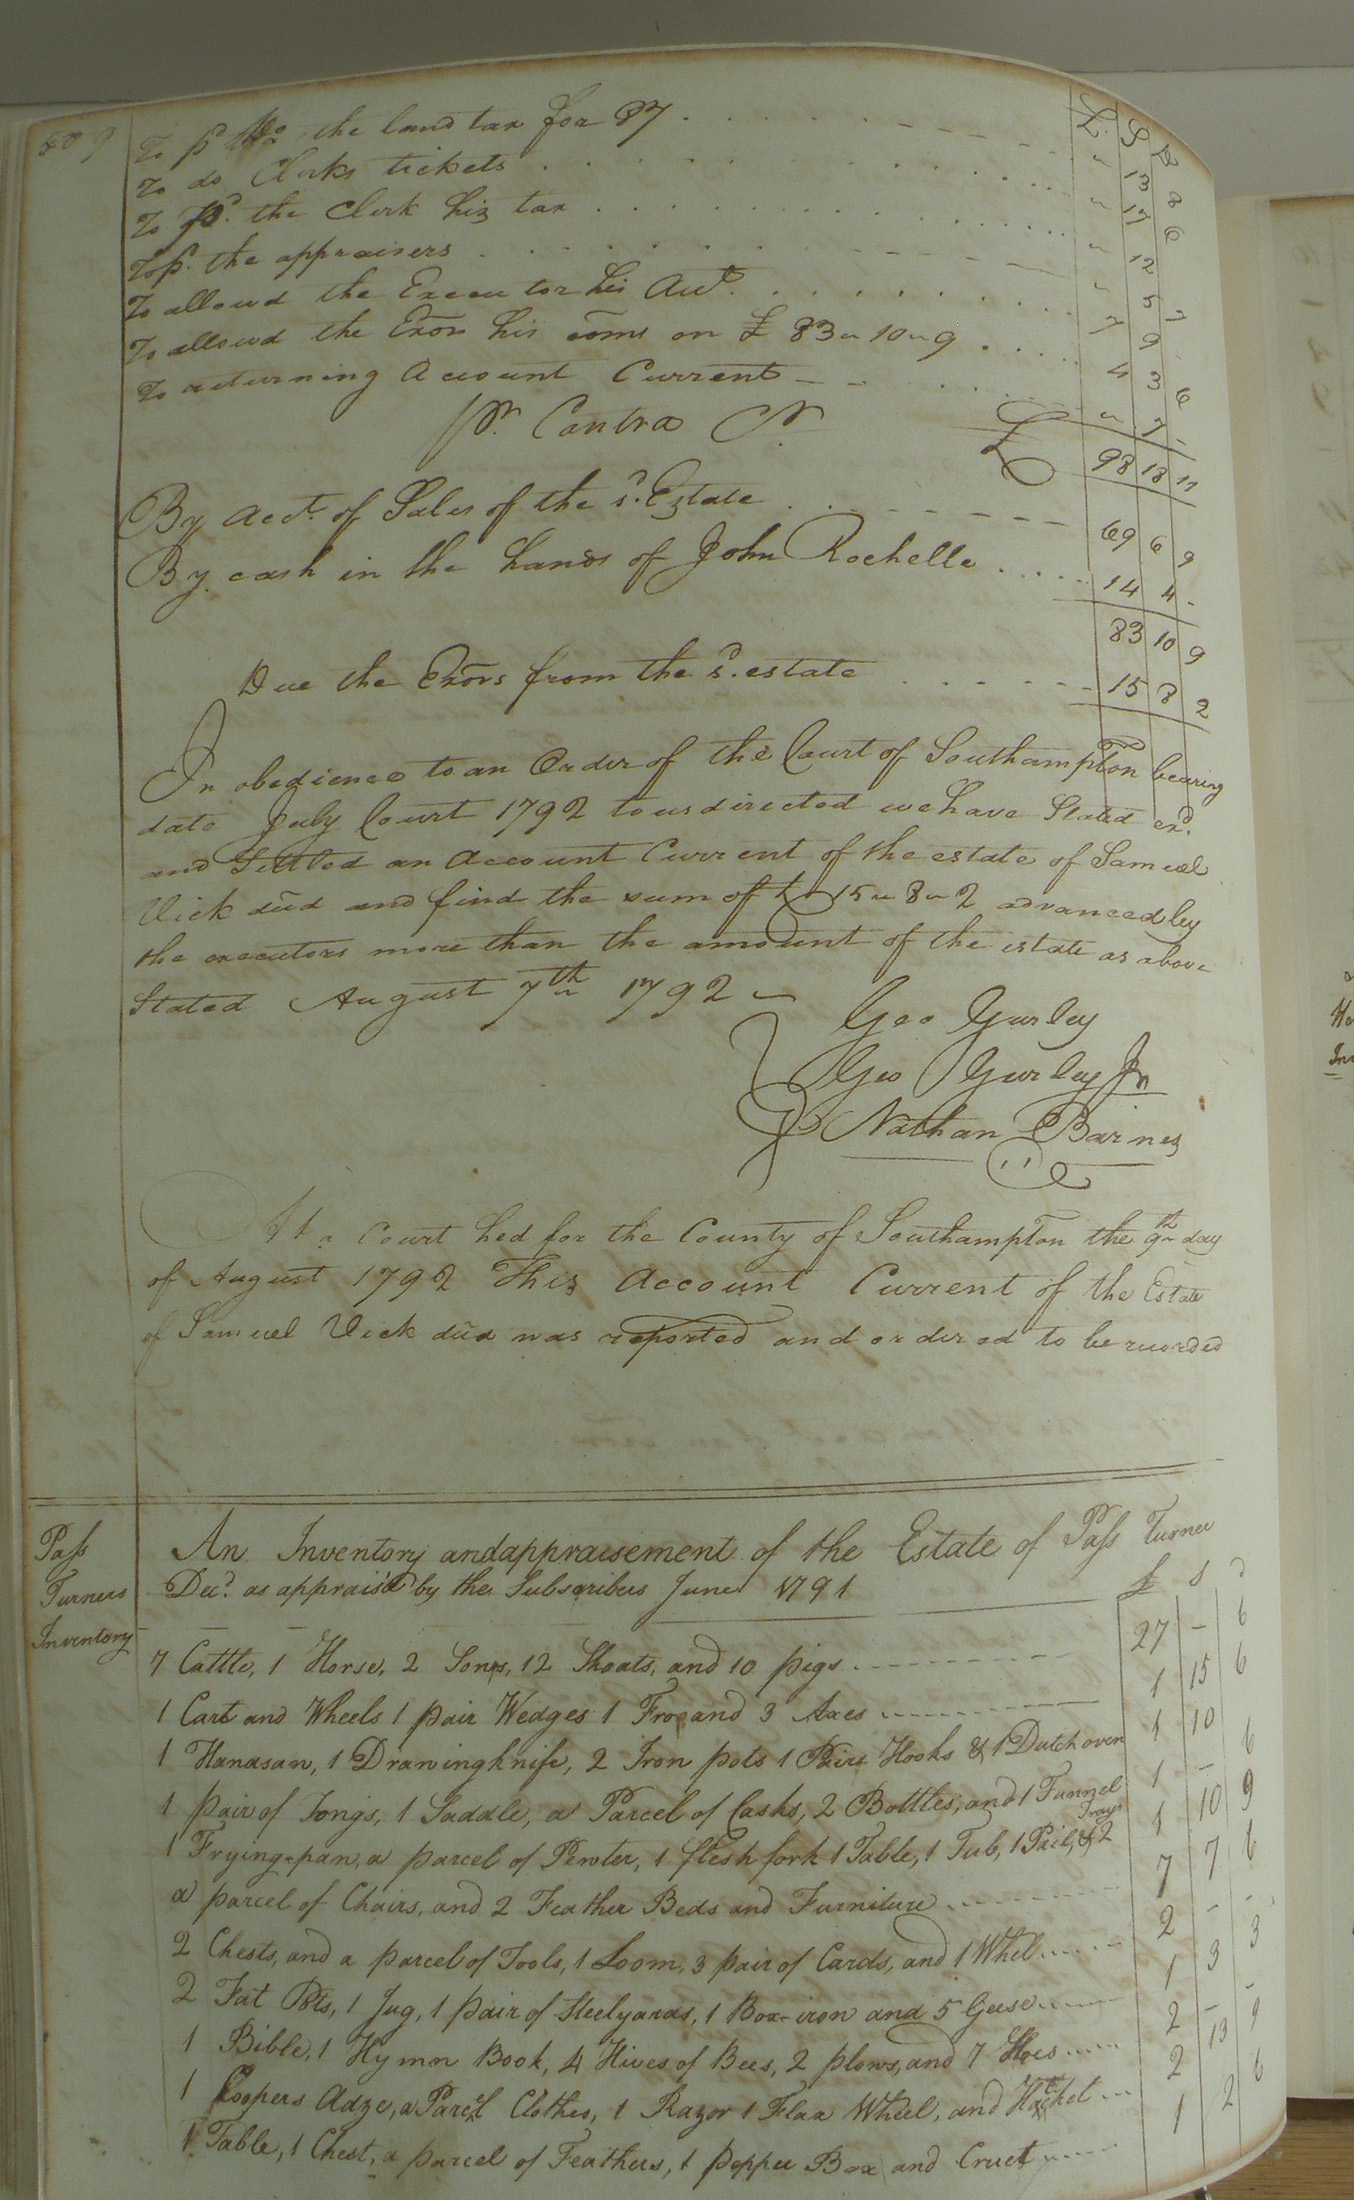 £ S D
To pd. the land tax for 87 . . . . " 13 8
To do Clerks tickets . . . . " 17 6
To pd. the Clerk his tax . . . . " 12
To pd. the appraisers . . . . " 5 7
To allowd the Executor his Act. . . . . 7 9
To allowd the Exors his coms on £ 83 " 10 " 9 . . . . 4 3 6
To returning Account Current . . . . " 7 -
£ 98 18 11
Pr. Contra Cr.
By Acct. of Sales of the sd. Estate . . . . 69 6 9
By cash in the hands of John Rochelle . . . . 14 4 -
83 10 9
Due the Exors from the sd. estate . . . . 15 8 2
In obedience to an Order of the Court of Southampton bearing
date July Court 1792 to us directed we have Stated exd.
and Settled an Account Current of the estate of Samuel
Vick decd and find the sum of £ 15 " 8 " 2 advanced by
the executors more than the amount of the estate as above
Stated August 7th 1792
Geo Gurley
Geo Gurley Jr
Nathan Barnes
At a Court held for the County of Southampton the 9th day
of August 1792 This Account Current of the Estate
of Samuel Vick decd was reported and ordered to be recorded
Pass
Turners
Inventory
An Inventory and appraisement of the Estate of Pass Turner
Decd. as apprais'd by the Subscribers June 1791
£ S d
7 Cattle, 1 Horse, 2 Sows, 12 Shoats, and 10 pigs . . . . 27 - 6
1 Cart and Wheels 1 pair Wedges 1 Froe and 3 Axes . . . . 1 15 6
1 Handsaw, 1 Drawingknife, 2 Iron pots 1 Pair Hooks & 1 Dutch oven 1 10
1 pair of Tongs, 1 Saddle, a Parcel of Casks, 2 Bottles, and 1 Funnel 1 - 6
1 Frying-pan, a parcel of Pewter, 1 flesh fork 1 Table, 1 Tub, 1 Pail, & 2 Trays 1 10 9
a parcel of Chairs, and 2 Feather Beds and Furniture . . . . 7 7 6
2 Chests, and a parcel of Tools, 1 Loom, 3 pair of Cards, and 1 Whel . . . . 2 - -
2 Fat Pots, 1 Jug, 1 pair of Steelyards, 1 Box-iron and 5 Geese . . . . 1 3 3
1 Bible, 1 Hymn Book, 4 Hives of Bees, 2 plows, and 7 Hoes . . . . 2 - -
1 Coopers Adze, a Parcel Clothes, 1 Razor 1 Flax Wheel, and Hackel . . . . 2 13 9
1 Table, 1 Chest, a parcel of Feathers, 1 pepper Box and Cruet . . . . 1 2 6